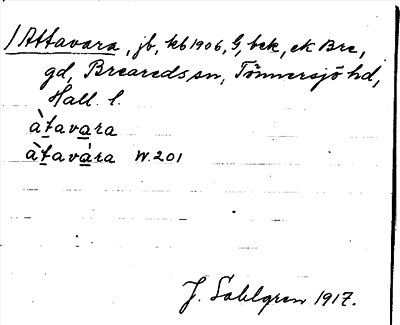 /Attavara, jb, kb 1906, G, bek, ek Bre,
gd, Breareds sn, Tönnersjö hd,
Hall. l.
àtavara
àtavàra W. 201
J. Sahlgren 1917.